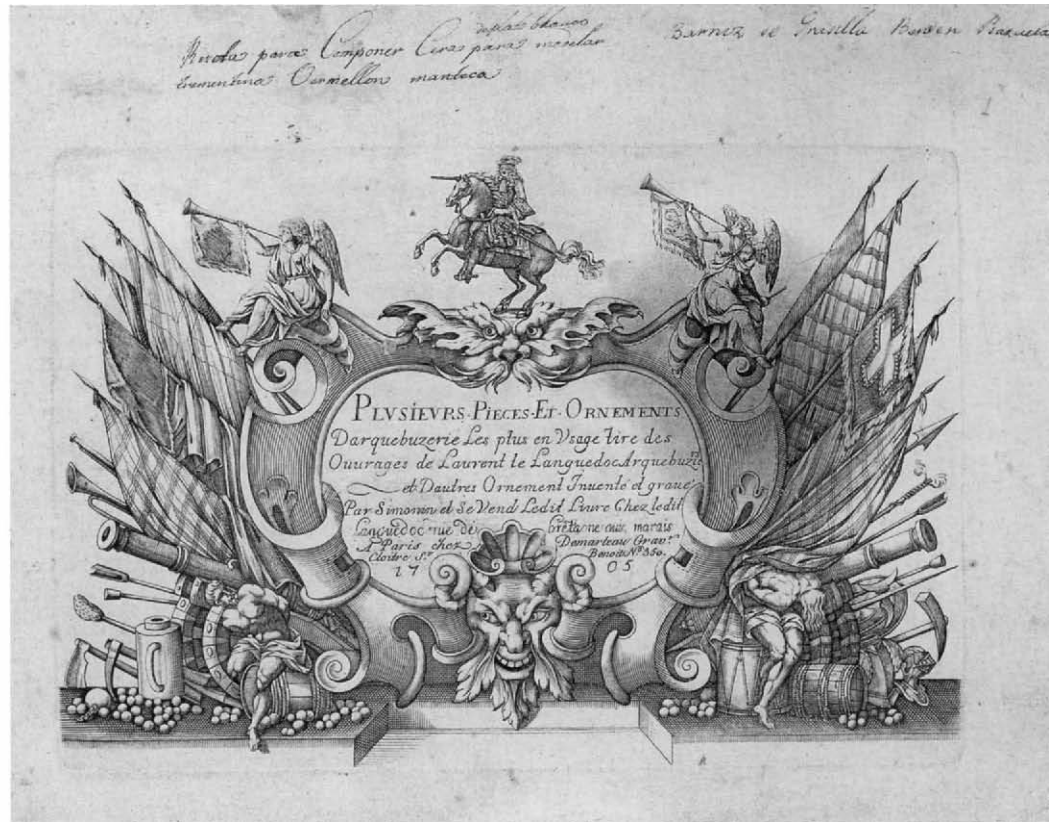 después blanco
Reseta para Componer Ceras para mesclar
trementina Vermellon manteca
Barniz de Grasilla
1
PLVSIEVRS · PIECES · ET · ORNEMENTS
Darquebuzerie Les plus en Vsage tire des
Ouurages de Laurent le Languedoc Arquebuzier
et Dautres Ornement Inuenté et graué
Par Simonin et Se Vend Ledit Liure Chez ledit
Languedoc rue de bretagne aux marais
A Paris chez Demarteau Grav.r
Cloitre S.t Benoit N.o 350.
17 05